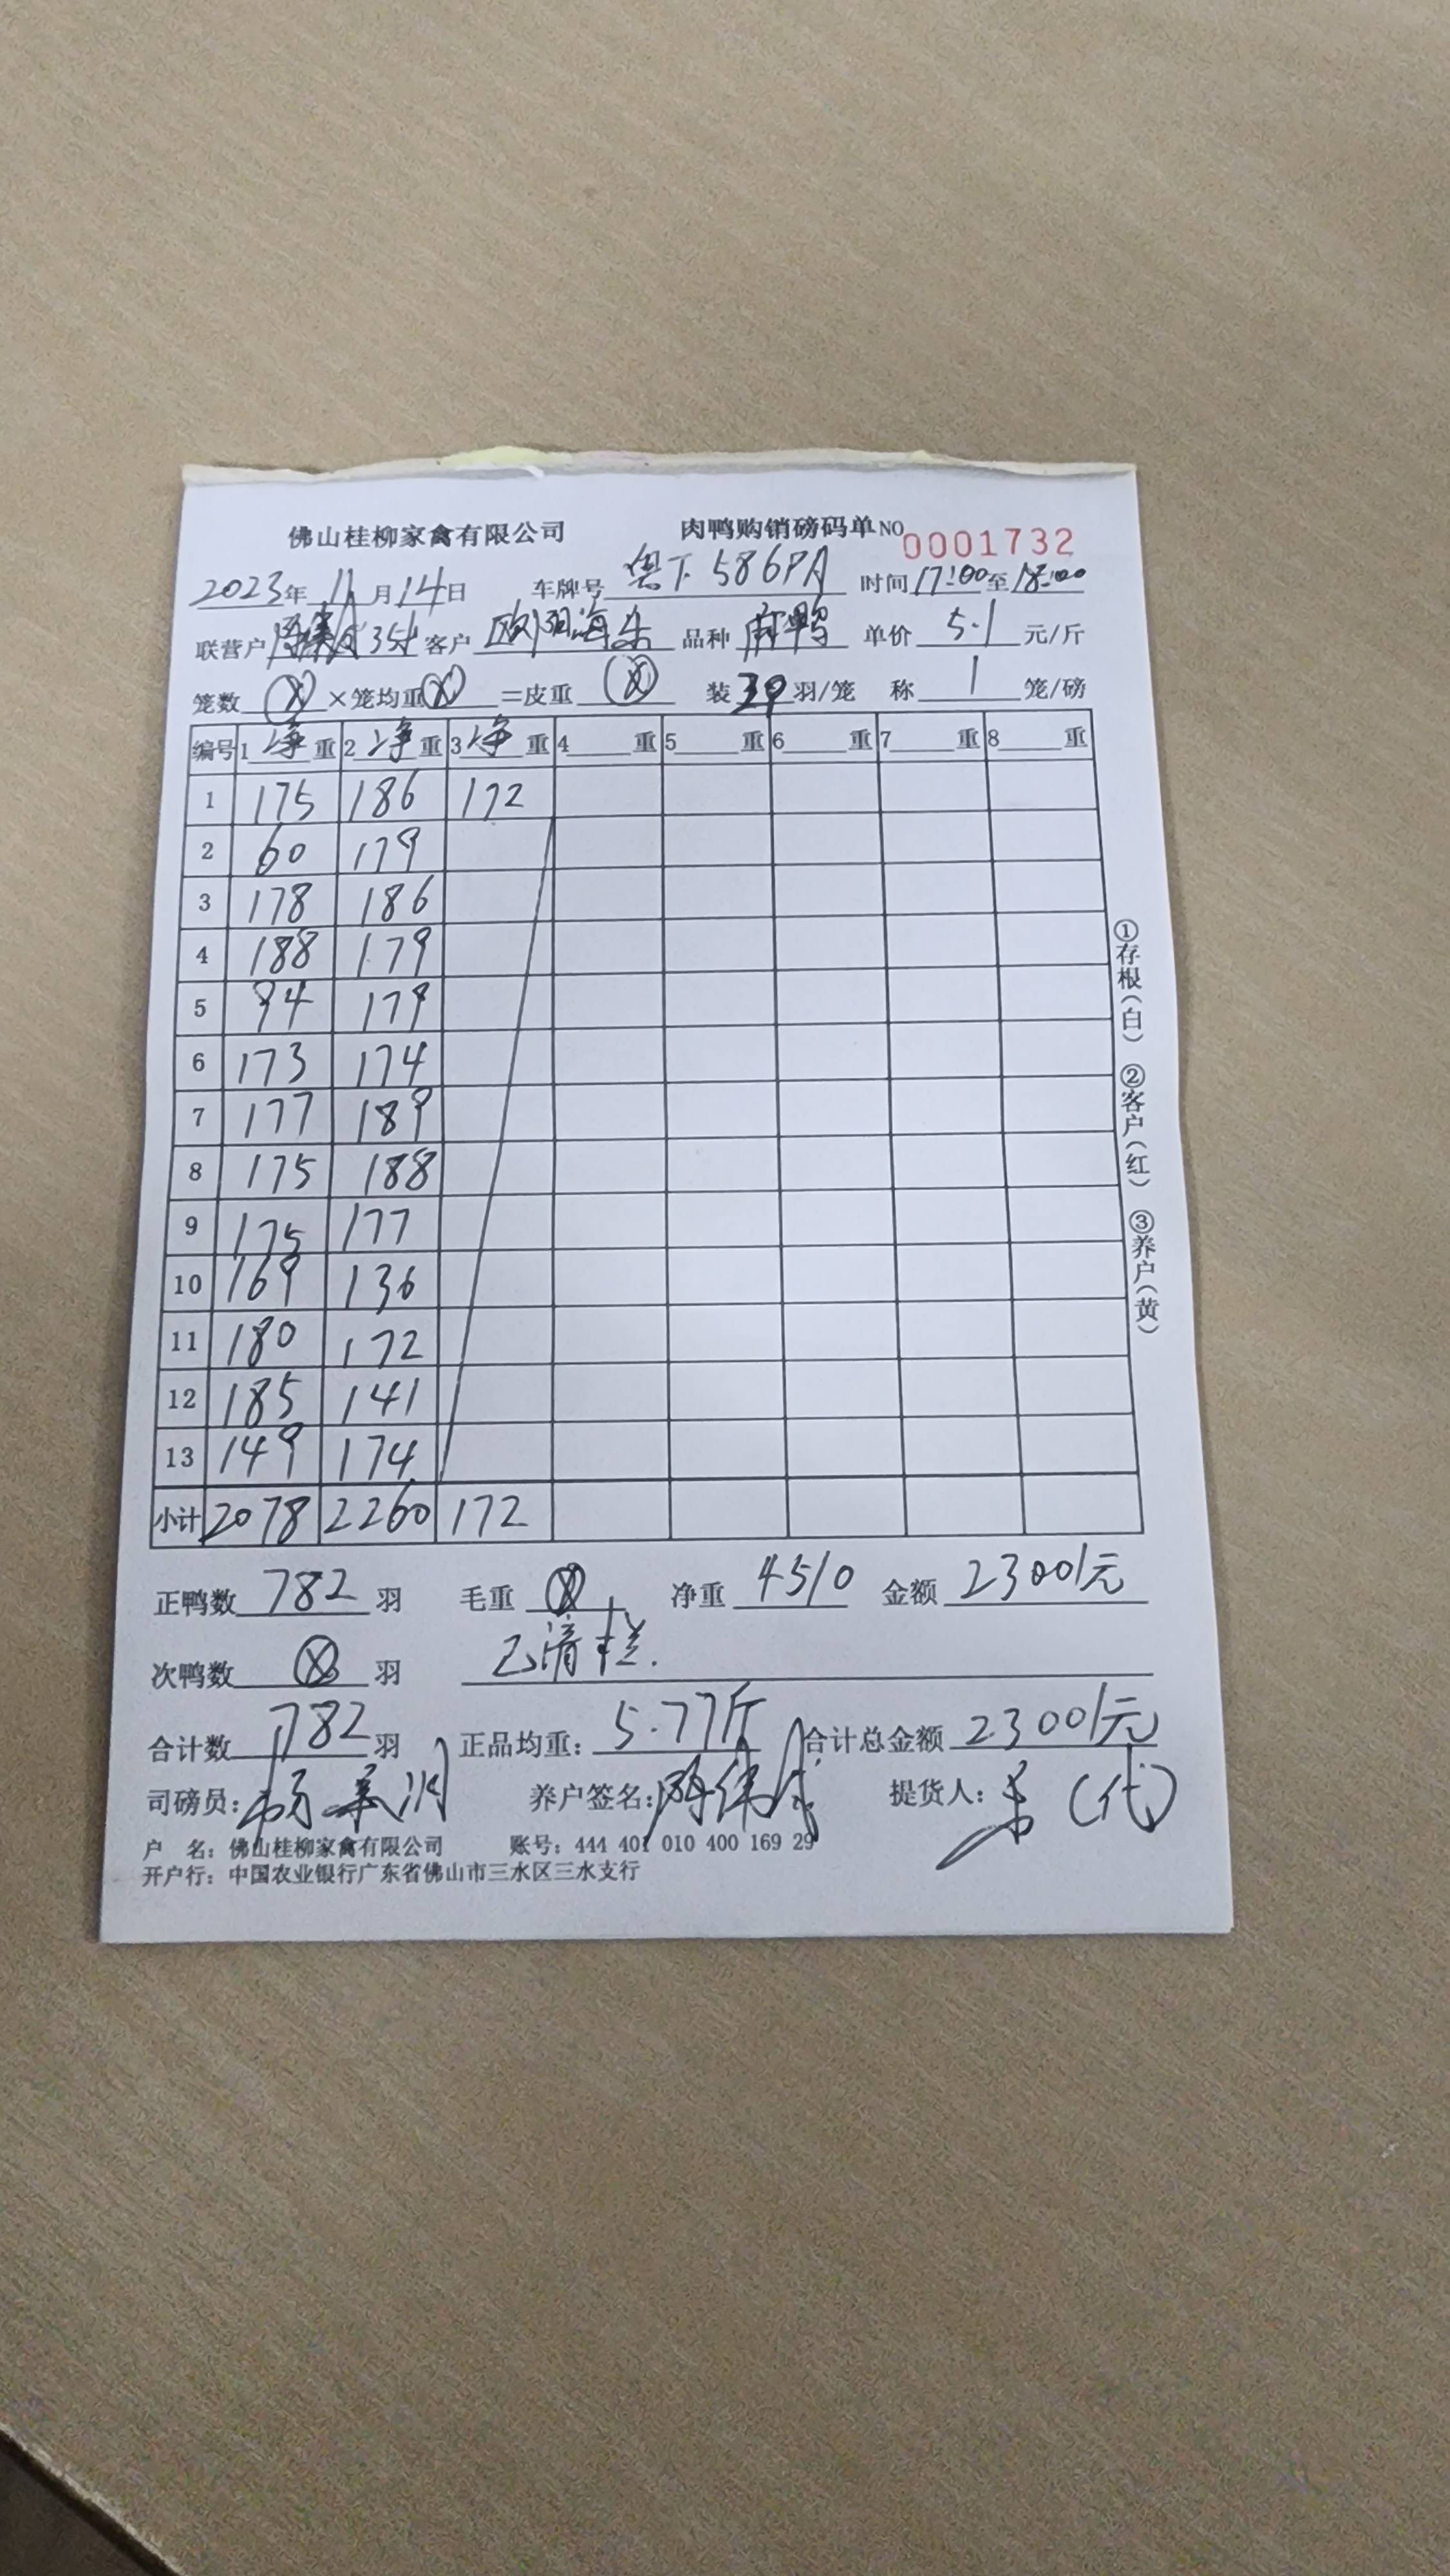 佛山桂柳家禽有限公司 肉鸭购销磅码单 NO 0001732
2023年 11月14日 车牌号 586PA 时间 17:00至18:00
联营户 354 客户 欧阳海 品种 麻鸭 单价 5.1 元/斤
笼数 ⊗ ×笼均重 ⊗ =皮重 ⊗ 装 39 羽/笼 称 1 笼/磅
编号 1 净 重 2 净 重 3 净 重 4 重 5 重 6 重 7 重 8 重
1 175 186 172
2 60 179
3 178 186
4 188 179
5 94 179
6 173 174
7 177 189
8 175 188
9 175 177
10 169 136
11 180 172
12 185 141
13 149 174
小计 2078 2260 172
正鸭数 782 羽 毛重 ⊗ 净重 4510 金额 23001元
次鸭数 ⊗ 羽 已清栏.
合计数 782 羽 正品均重: 5.77斤 合计总金额 23001元
司磅员: 杨 养户签名: 陈伟 提货人: (代)
户 名: 佛山桂柳家禽有限公司 账号: 444 401 010 400 169 29
开户行: 中国农业银行广东省佛山市三水区三水支行
①存根(白) ②客户(红) ③养户(黄)